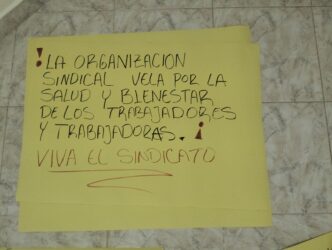 !LA ORGANIZACION
SINDICAL VELA POR LA
SALUD Y BIENESTAR
DE LOS TRABAJADORES
Y TRABAJADORAS.¡
VIVA EL SINDICATO